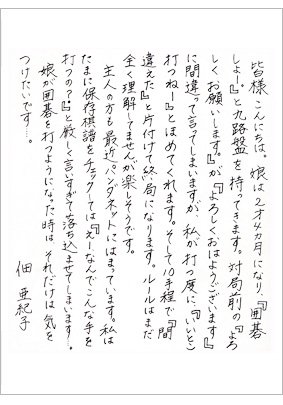 皆様こんにちは。娘は2才4カ月になり、『囲碁
しよー。』と九路盤を持ってきます。対局前の『よろ
しくお願いします。』が『よろしくおはようございます』
に間違って言ってしまいますが、私が打つ度に、『いいとこ
打つねー』とほめてくれます。そして10手程で『間
違えた』と片付けて終局になります。ルールはまだ
全く理解してませんが楽しそうです。
主人の方も最近パンダネットにはまっています。私は
たまに保存棋譜をチェックしては『えーなんでこんな手を
打つの?。』と厳しく言いすぎて落ち込ませてしまいます…。
娘が囲碁を打つようになった時は それだけは気を
つけたいです…。
佃 亜紀子